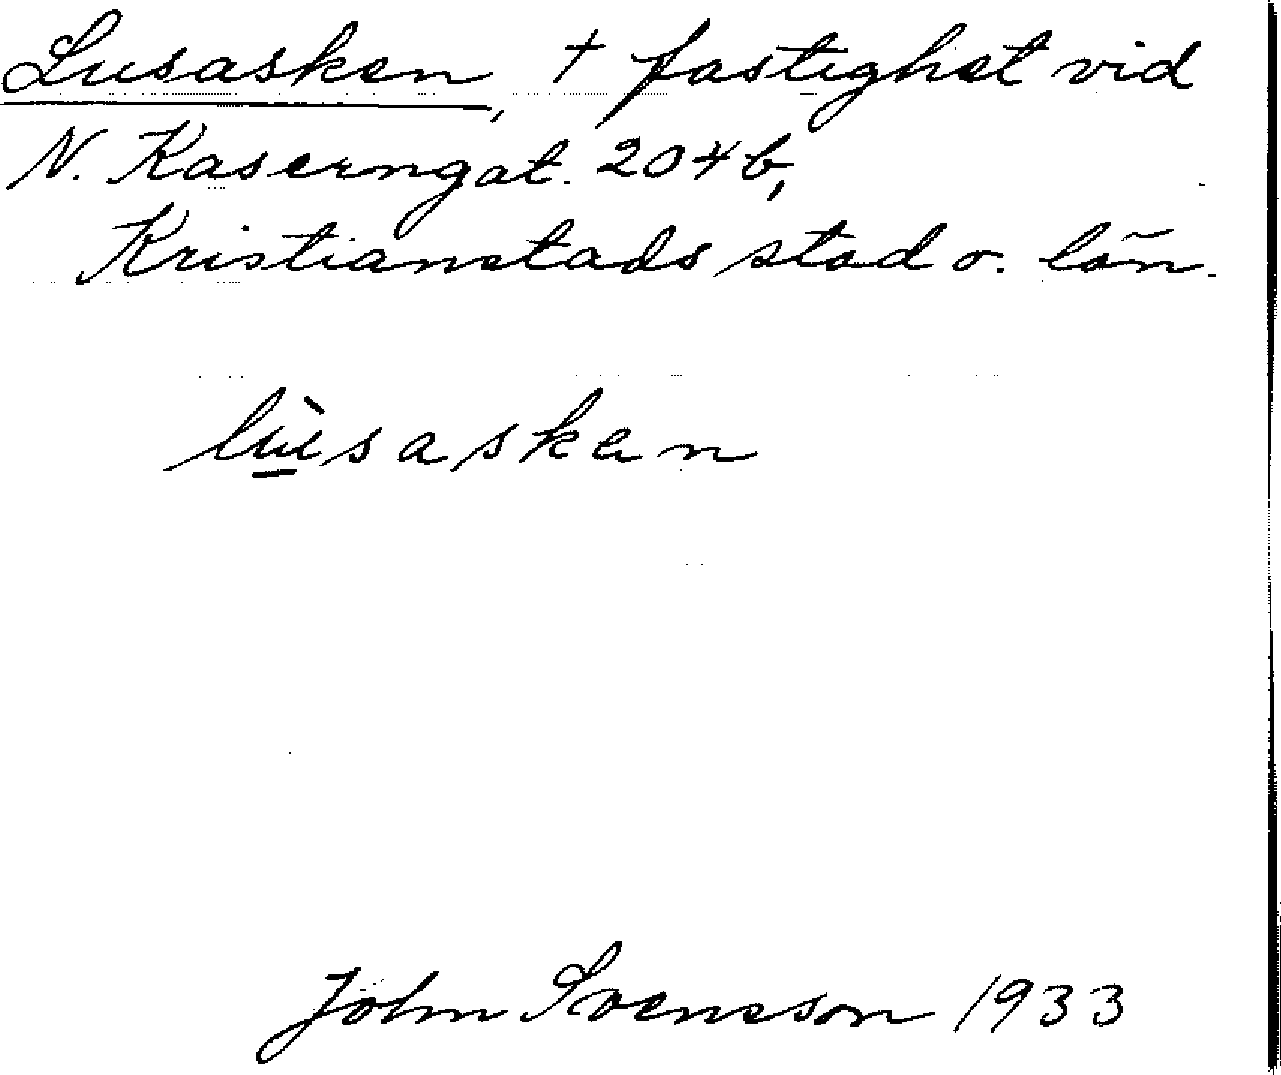 Lusasken, † fastighet vid
N. Kaserngat. 204b,
Kristianstads stad o. län.
lù̱sasken
John Svensson 1933